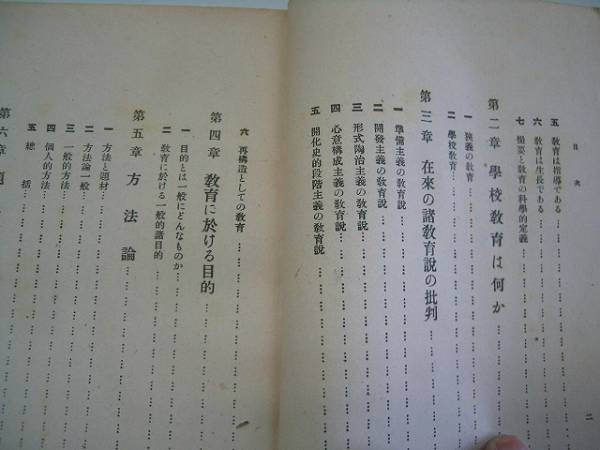 目次
五 教育は指導である
六 教育は生長である
七 摘要と教育の科學的定義
第二章 學校教育は何か
一 狹義の教育
二 學校教育
第三章 在來の諸教育說の批判
一 準備主義の教育說
二 開發主義の教育說
三 形式陶冶主義の教育說
四 心意構成主義の教育說
五 開化史的段階主義の教育說
二
六 再構造としての教育
第四章 教育に於ける目的
一 目的とは一般にどんなものか
二 教育に於ける一般的諸目的
第五章 方法論
一 方法と題材
二 方法論一般
三 一般的方法
四 個人的方法
五 總括
第六章